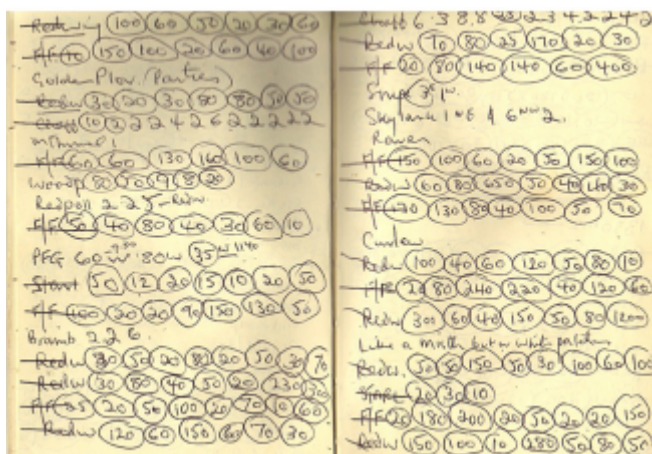 Redwing 100 60 50 20 30 60
F/F 70 150 100 20 60 40 100
Golden Plov. (Parties)
Redw 30 20 30 80 80 50 50
Chaff 10 2 2 2 4 2 6 2 2 2 2 2
F/F 60 60 130 160 100 60
Woodp 80 50 9 8 20
Redpoll 2 2 5
F/F 50 40 80 40 30 60 10
PFG 60 W 80 W 35 W 1140
Start 50 12 20 15 10 20 50
F/F 100 20 20 90 150 130 50
Bramb 2 2 6
Redw 80 50 20 80 20 50 30 70
Redw 30 80 40 50 20 230
F/F 85 20 50 100 20 70 10 60
Redw 120 60 150 60 70 30
Chaff 6 3 8 8 23 2 3 4 2 2 4 2
Redw 70 80 25 170 20 30
F/F 20 80 140 140 60 400
Snipe 3 1
Skylark 1 NE 4 6 NW 2
Raven
F/F 150 100 60 20 50 150 100
Redw 60 80 650 50 40 160 30
F/F 20 130 80 40 100 50 70
Curlew
Redw 100 40 60 120 50 80 10
F/F 20 80 240 220 40 120 60
Redw 300 60 40 150 50 80 1200
Like a mistle but w white patches
Redw. 50 50 150 50 30 100 60 100
Start 20 30 10
F/F 20 180 200 20 50 20 20 150
Redw 150 100 10 280 50 80 50